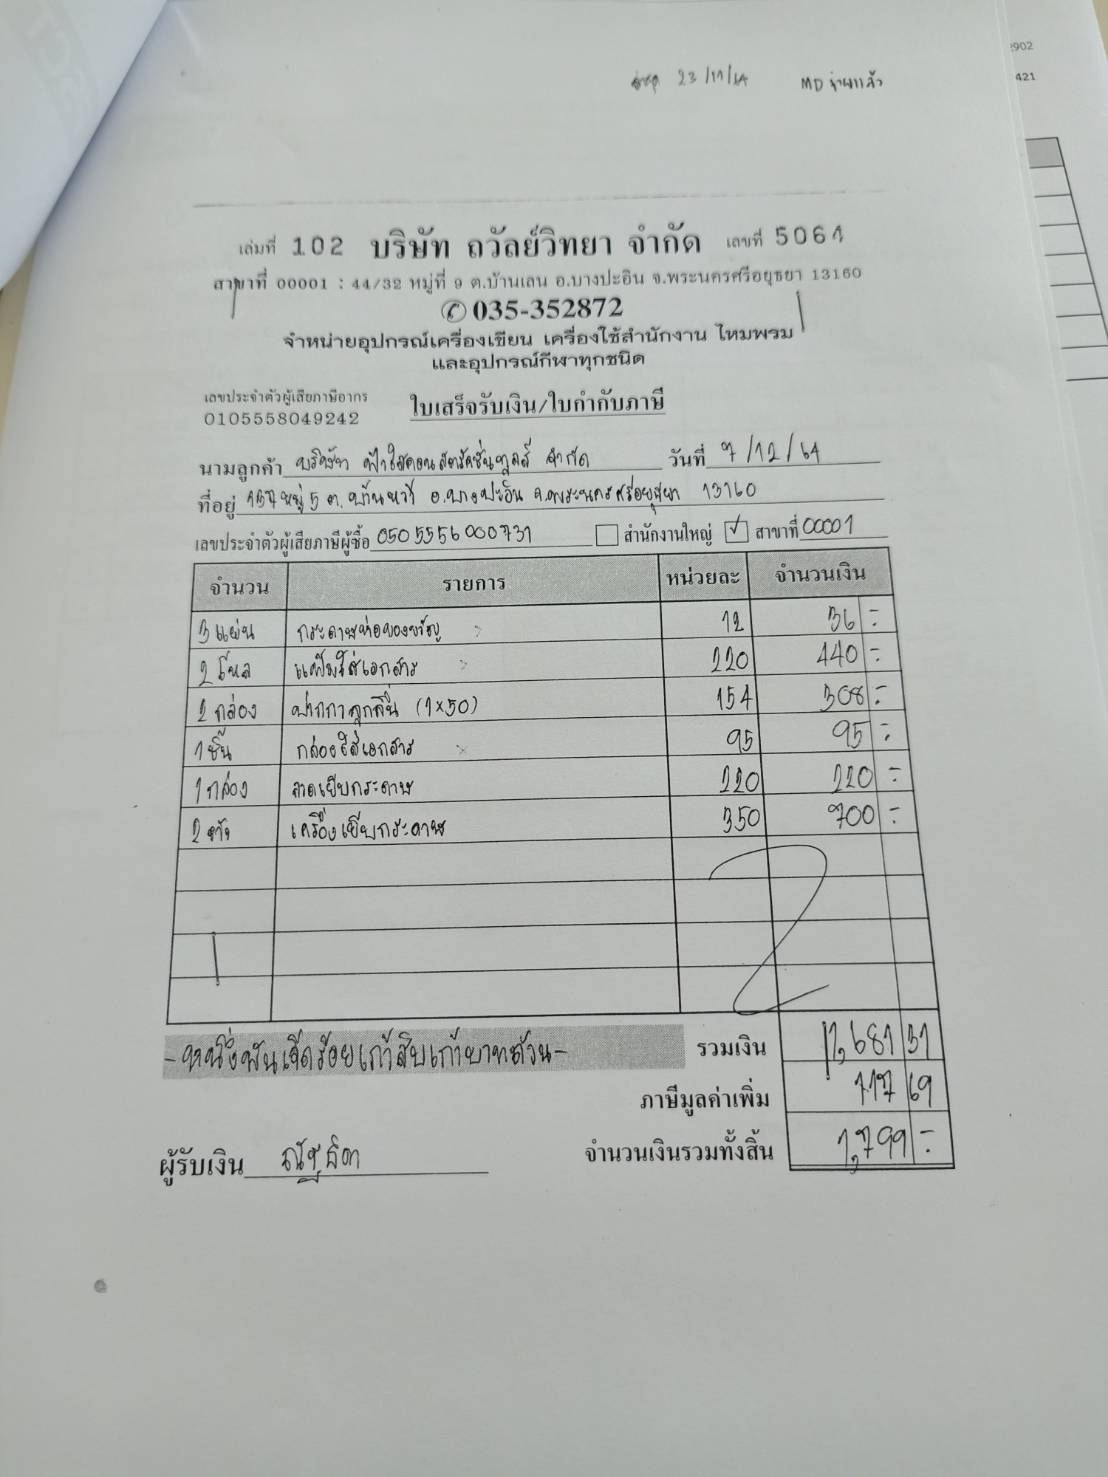 2902
421
23/11/64 MD จ่ายแล้ว
เล่มที่ 102 บริษัท ถวัลย์วิทยา จำกัด เลขที่ 5064
สาขาที่ 00001 : 44/32 หมู่ที่ 9 ต.บ้านเลน อ.บางปะอิน จ.พระนครศรีอยุธยา 13160
035-352872
จำหน่ายอุปกรณ์เครื่องเขียน เครื่องใช้สำนักงาน ไหมพรม
และอุปกรณ์กีฬาทุกชนิด
เลขประจำตัวผู้เสียภาษีอากร
0105558049242 ใบเสร็จรับเงิน/ใบกำกับภาษี
นามลูกค้า บริษัท ฟ้าใสคอนสตรัคชั่นทูลส์ จำกัด วันที่ 7/12/64
ที่อยู่ 157 หมู่ 5 ต.บ้านหว้า อ.บางปะอิน จ.พระนครศรีอยุธยา 13160
เลขประจำตัวผู้เสียภาษีผู้ซื้อ 0505556000731 สำนักงานใหญ่ ✓ สาขาที่ 00001
จำนวน รายการ หน่วยละ จำนวนเงิน
3 แผ่น กระดาษห่อของขวัญ 12 36 -
2 โหล แฟ้มใส่เอกสาร 220 440 -
2 กล่อง ปากกาลูกลื่น (1x50) 154 308 -
1 ชิ้น กล่องใส่เอกสาร 95 95 -
1 กล่อง ลวดเย็บกระดาษ 220 220 -
2 ตัว เครื่องเย็บกระดาษ 350 700 -
-หนึ่งพันเจ็ดร้อยเก้าสิบเก้าบาทถ้วน- รวมเงิน 1,681 31
ภาษีมูลค่าเพิ่ม 117 69
ผู้รับเงิน จำนวนเงินรวมทั้งสิ้น 1,799 -